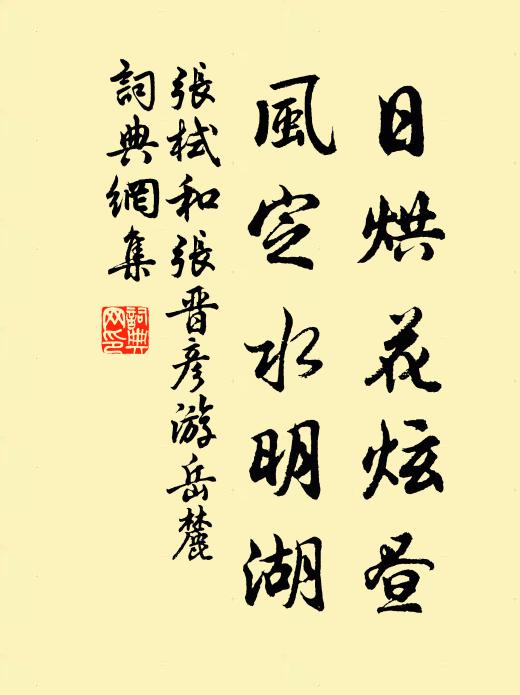 日烘花炫昼
風定水明湖
張栻和張晋彦游岳麓
詞典網集
詞典网印